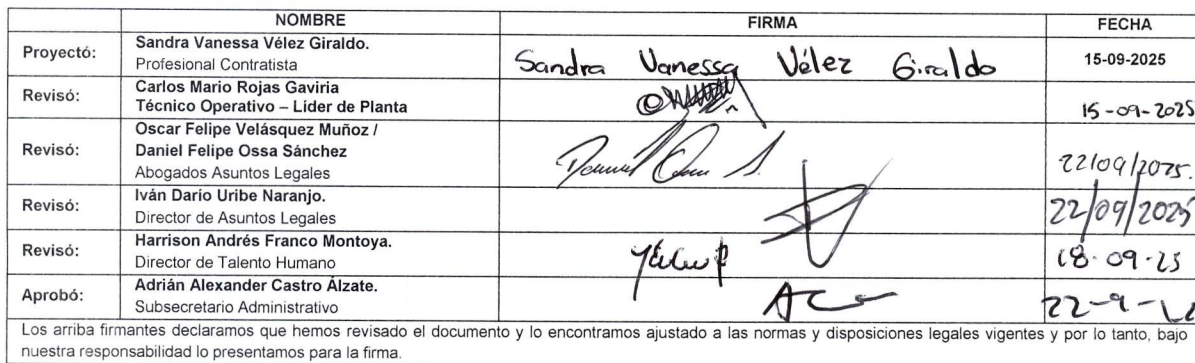 NOMBRE FIRMA FECHA
Proyectó: Sandra Vanessa Vélez Giraldo. Profesional Contratista Sandra Vanessa Vélez Giraldo 15-09-2025
Revisó: Carlos Mario Rojas Gaviria Técnico Operativo – Líder de Planta 15-09-2025
Revisó: Oscar Felipe Velásquez Muñoz / Daniel Felipe Ossa Sánchez Abogados Asuntos Legales 22/09/2025.
Revisó: Iván Darío Uribe Naranjo. Director de Asuntos Legales 22/09/2025
Revisó: Harrison Andrés Franco Montoya. Director de Talento Humano 18-09-25
Aprobó: Adrián Alexander Castro Álzate. Subsecretario Administrativo 22-9-
Los arriba firmantes declaramos que hemos revisado el documento y lo encontramos ajustado a las normas y disposiciones legales vigentes y por lo tanto, bajo
nuestra responsabilidad lo presentamos para la firma.